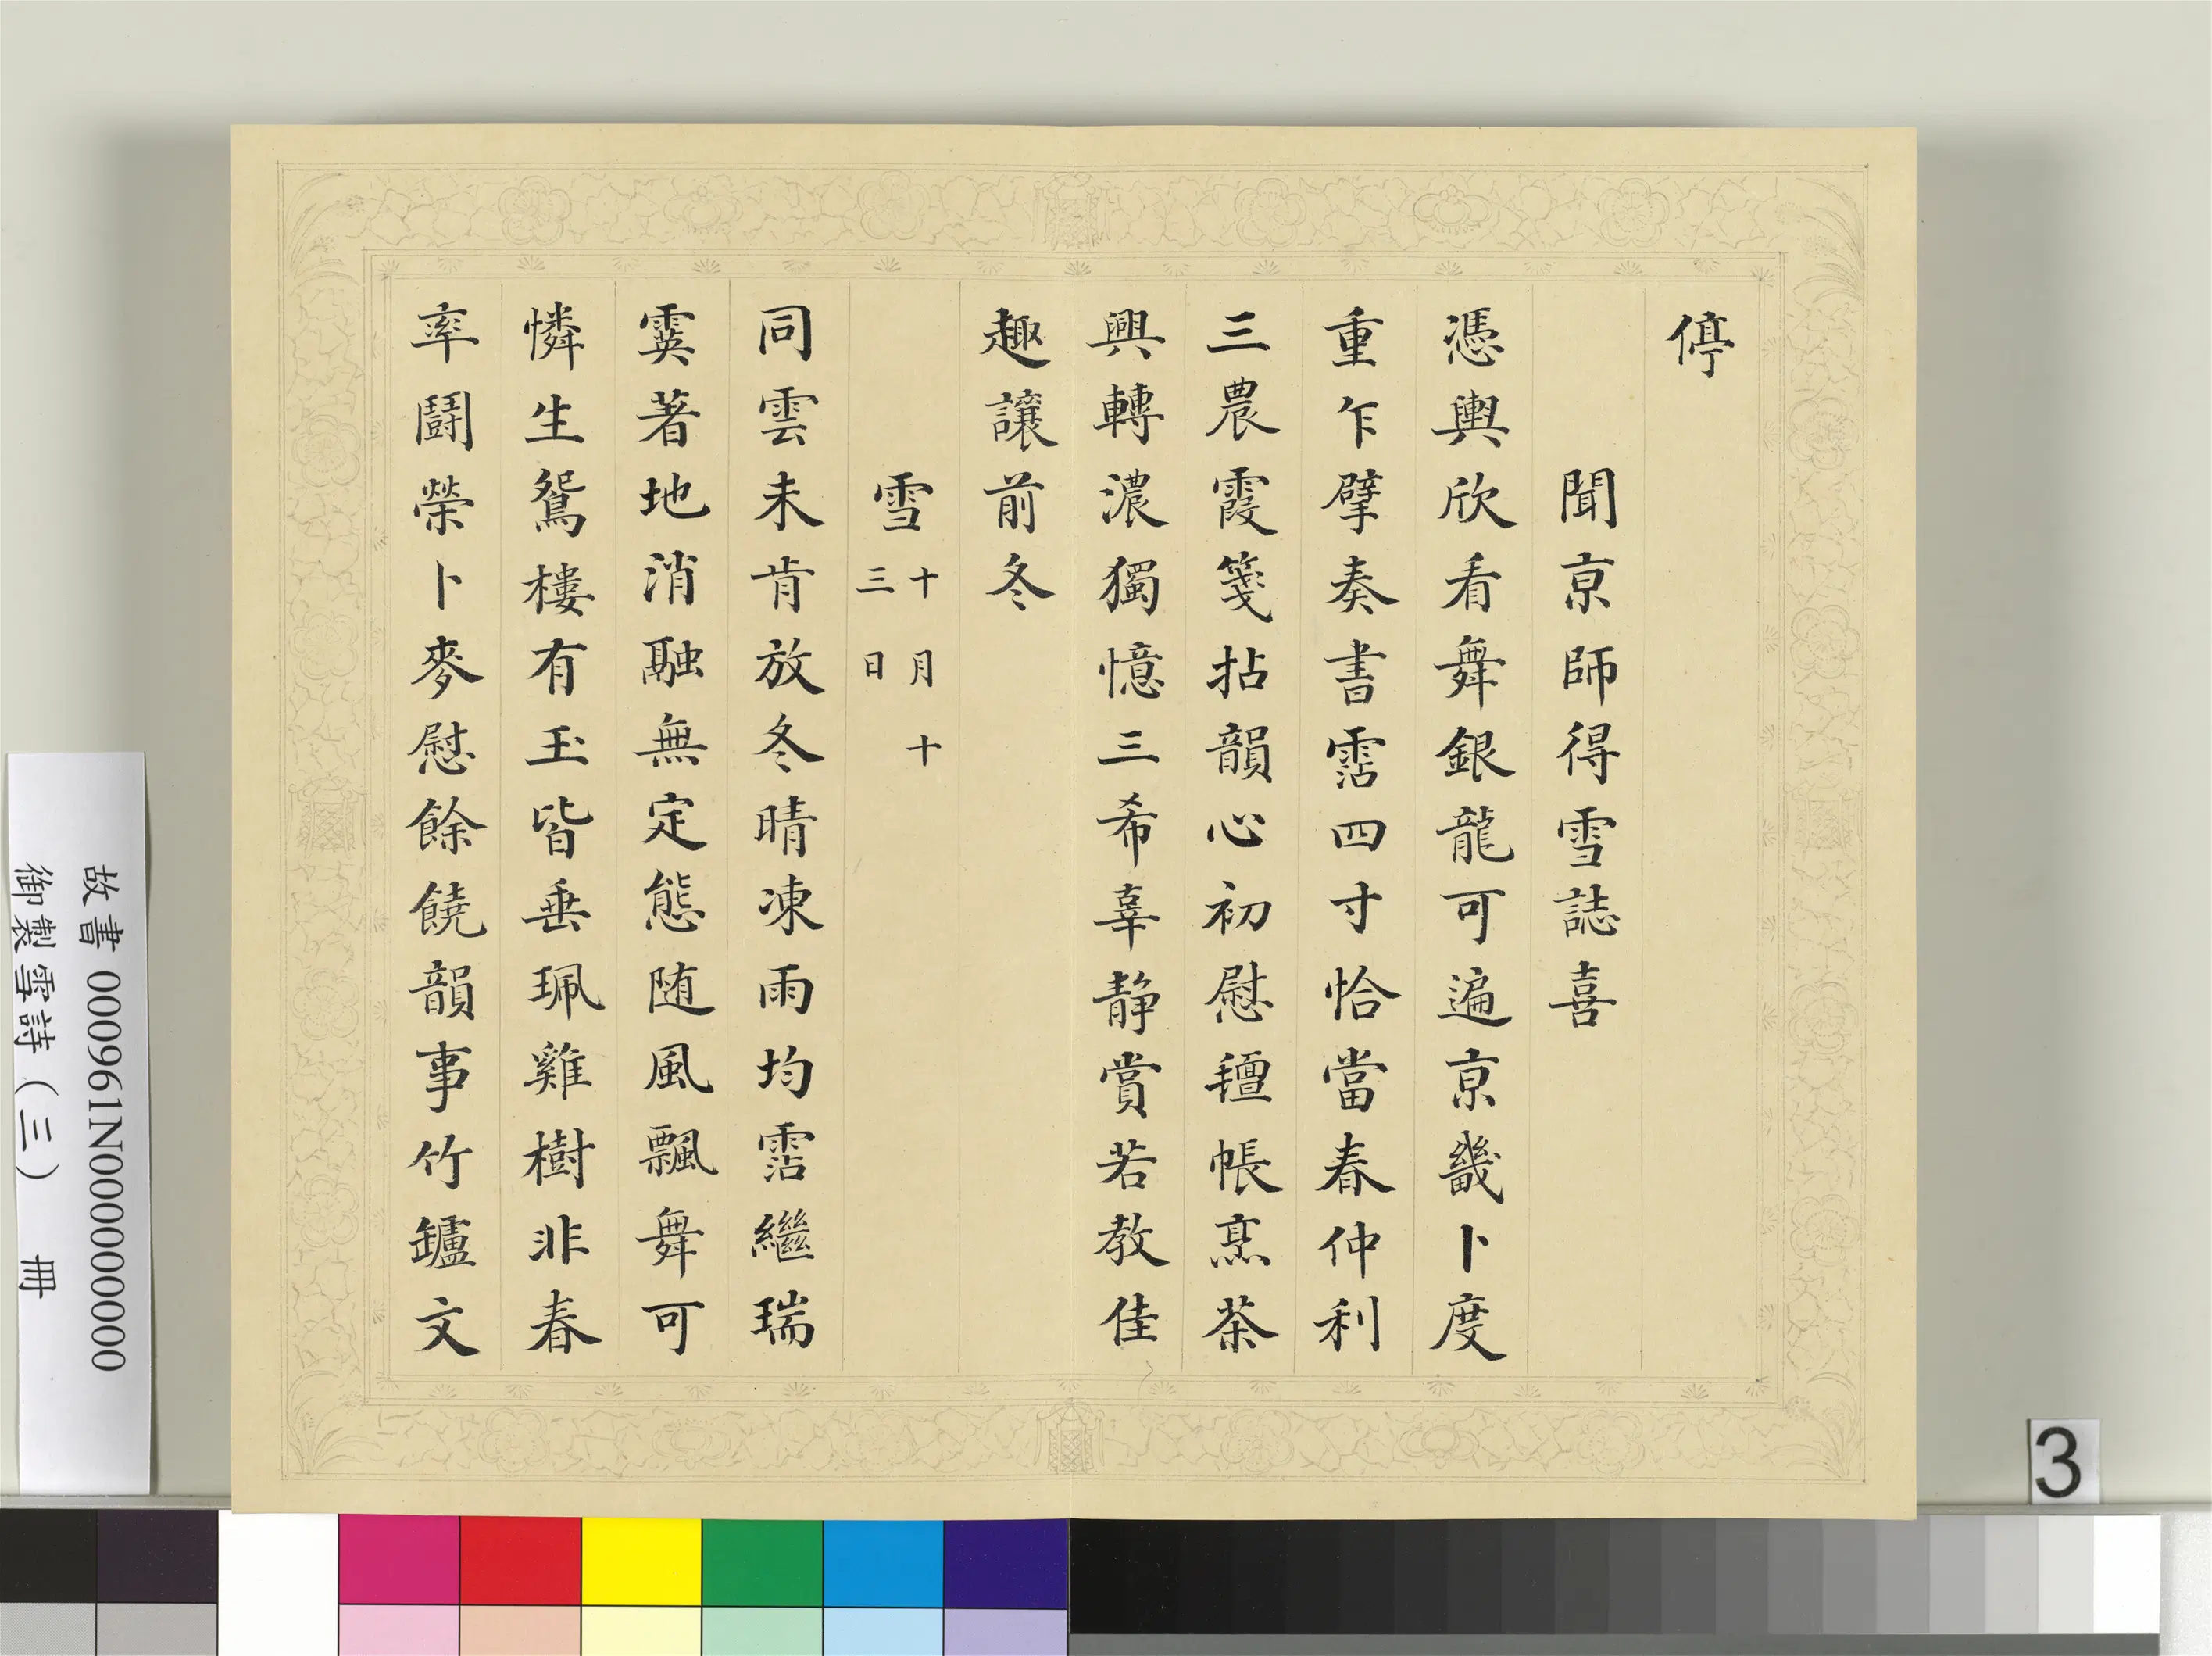 停
聞京師得雪誌喜
憑輿欣看舞銀龍可遍京畿卜度
重乍擘奏書霑四寸恰當春仲利
三農霞箋拈韻心初慰氊帳烹茶
興轉濃獨憶三希辜静賞若教佳
趣讓前冬
雪 十月十三日
同雲未肯放冬晴凍雨均霑繼瑞
霙著地消融無定態随風飄舞可
憐生鴛樓有玉皆垂珮雞樹非春
率鬪榮卜麥慰餘饒韻事竹鑪文
故書 000961N000000000
御製雪詩（三） 冊
3